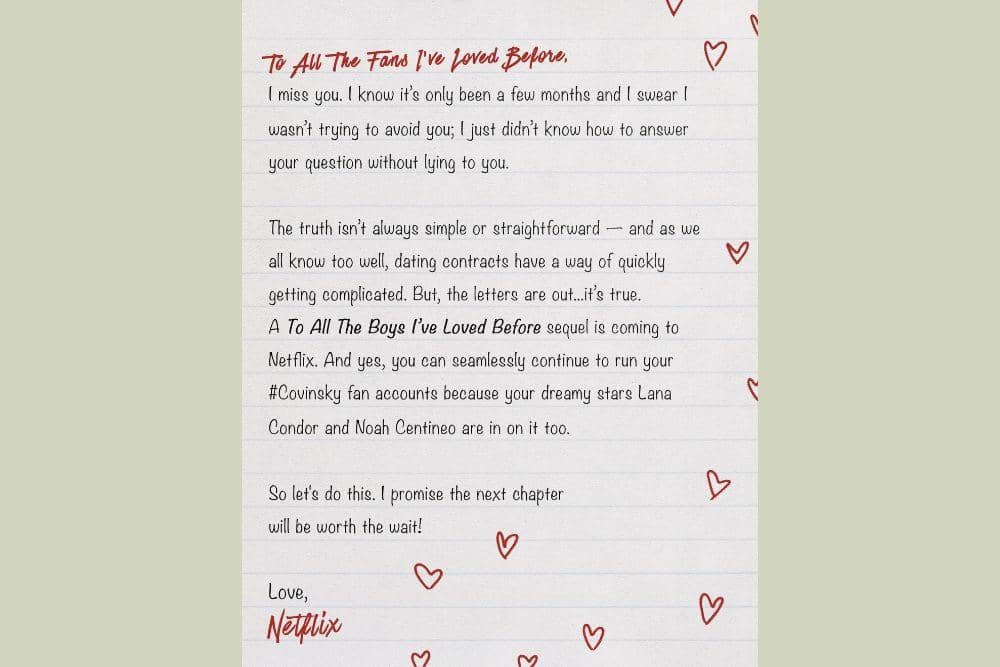 To All The Fans I've Loved Before,
I miss you. I know it's only been a few months and I swear I
wasn't trying to avoid you; I just didn't know how to answer
your question without lying to you.
The truth isn't always simple or straightforward — and as we
all know too well, dating contracts have a way of quickly
getting complicated. But, the letters are out...it's true.
A To All The Boys I've Loved Before sequel is coming to
Netflix. And yes, you can seamlessly continue to run your
#Covinsky fan accounts because your dreamy stars Lana
Condor and Noah Centineo are in on it too.
So let's do this. I promise the next chapter
will be worth the wait!
Love,
Netflix